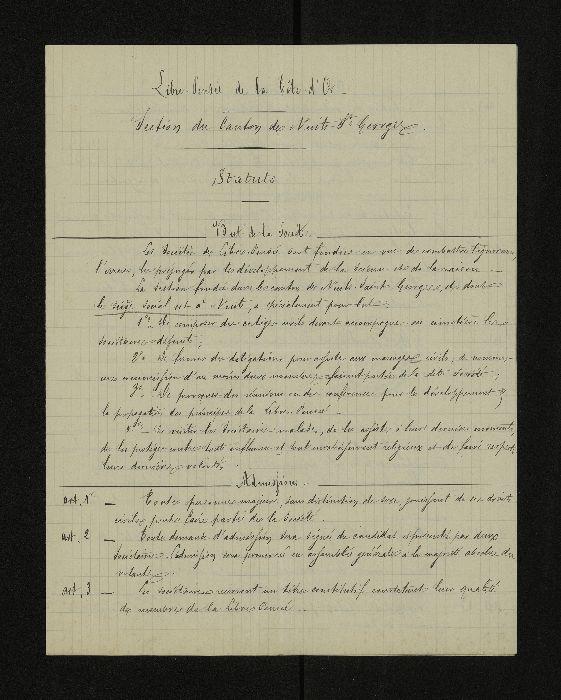 Libre Pensée de la Côte d'Or
Section du Canton de Nuits-St Georges.
Statuts
But de la Société
Les Sociétés de Libre Pensée sont fondées en vue de combattre l'ignorance,
l'erreur, les préjugés par le développement de la science et de la raison
La section fondée dans le canton de Nuits-Saint-Georges, et dont
le siège social est à Nuits, a spécialement pour but :
1º De composer des cortèges civils devant accompagner au cimetière les
sociétaires défunts ;
2º De former des délégations pour assister aux mariages civils,
d'au moins deux membres faisant partie de la dite Société ;
3º De provoquer des réunions ou des conférences pour le développement &
la propagation des principes de la Libre Pensée
4º De visiter les Sociétaires malades, de les assister à leurs derniers moments,
de les protéger contre tout et religieux et de faire respecter
leurs dernières volontés.
Admissions
art. 1er — Toute personne majeure, sans distinction de sexe, jouissant de ses droits
civils, pourra faire partie de la Société.
art. 2 — Toute demande d'admission sera signée du candidat et présentée par deux
sociétaires. L'admission sera prononcée en assemblée générale à la majorité absolue des
votants.
art. 3 — Les sociétaires recevront un titre constitutif constatant leur qualité
de membres de la Libre Pensée